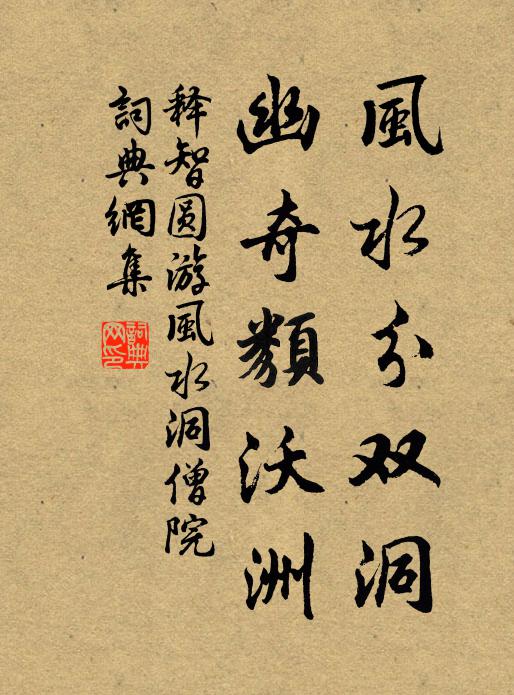 風水分双洞
幽奇類沃洲
释智圆游風水洞僧院
詞典網集
詞典
网印